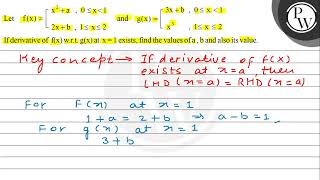 Let f(x) = [ x² + a , 0 ≤ x < 1
2x + b , 1 ≤ x ≤ 2 and g(x) = [ 3x + b , 0 ≤ x < 1
x³ , 1 ≤ x ≤ 2
If derivative of f(x) w.r.t. g(x) at x = 1 exists, find the values of a , b and also its value.
PW
Key concept → If derivative of f(x)
exists at x=a, then
LHD (x=a) = RHD (x=a)
For f(x) at x=1
1+a = 2+b ⇒ a-b=1
For g(x) at x=1
3+b